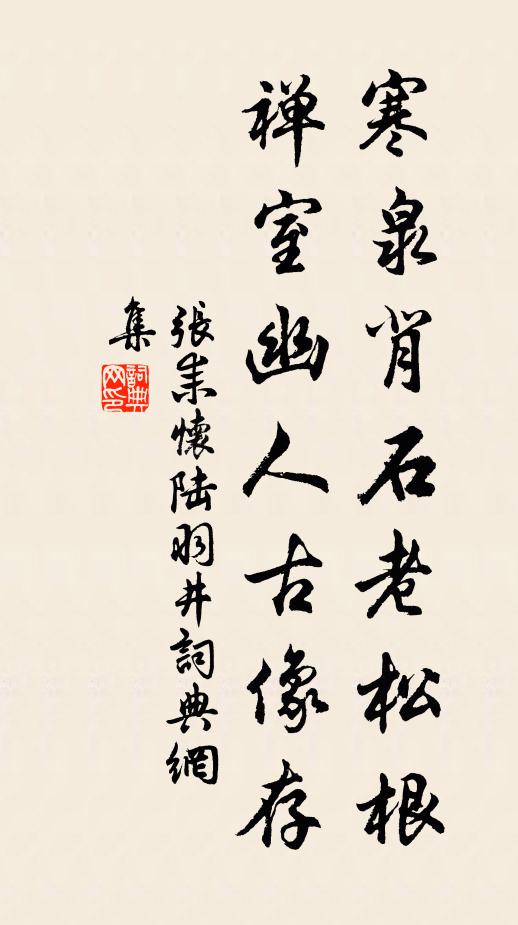 寒泉肖石老松根
禅室幽人古像存
張耒懷陆羽井詞典網
集
詞典
网印